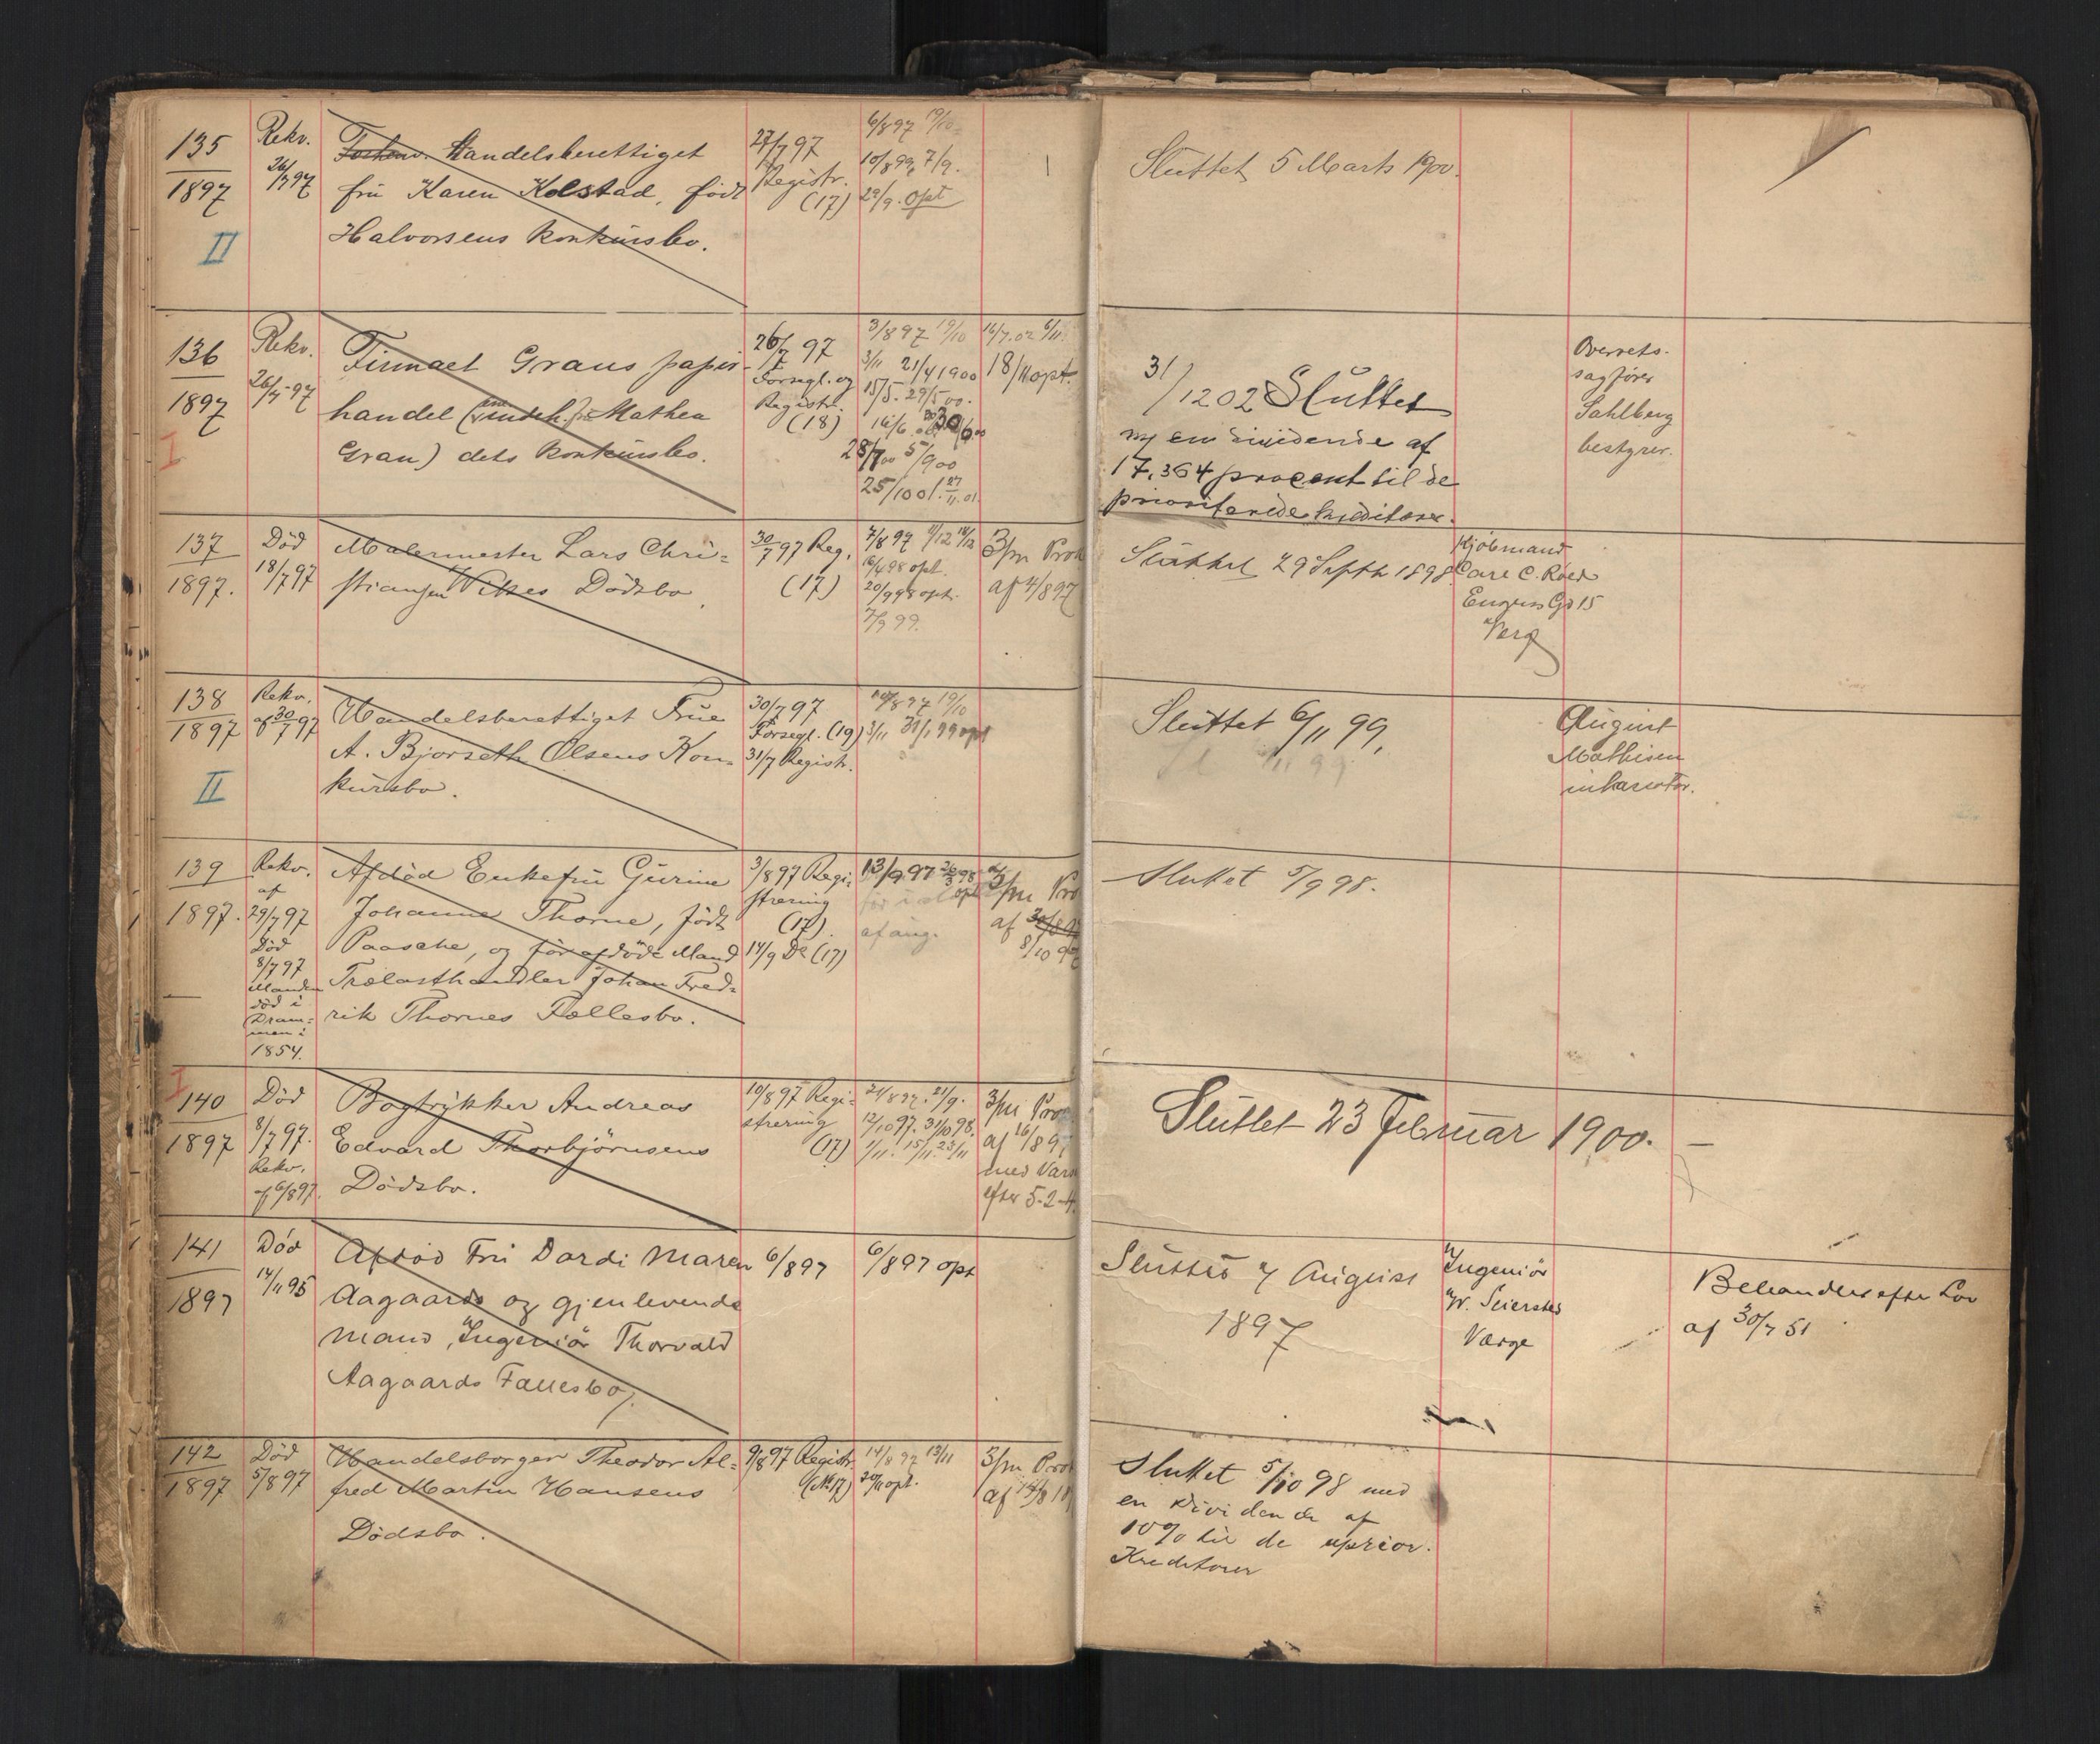 135
1897
II
Rekv.
26/7 97
Forhenv. Handelsberettiget
fru Karen Kolstad, født
Halvorsens konkursbo.
27/7 97
Registr.
(17)
6/8 97 19/10
10/8 99, 7/9.
29/9. opt
Sluttet 5 Marts 1900.
136
1897
I
Rekv.
26/7-97
Firmaet Grans papir-
handel (indeh. Mathea
Gran) dets konkursbo.
26/7 97
Forsegl. og
Registr.
(18)
3/8 97 19/10
3/11 21/4 1900
15/5. 29/5 00.
16/6
28/7 00 5/9 00
25/10 01. 27/11. 01.
16/7. 02 6/11.
18/11 opt.
31/12 02 Sluttet
m/ en dividende af
17,364 procent til de
prioriterede kreditorer.
Overrets-
sagfører
Sahlberg
bestyrer.
137
1897.
Død
18/7 97
Malermester Lars Chri-
stiansen Dødsbo.
30/7 97 Reg.
(17)
7/8 97 11/12 18/12
16/4 98 opt.
20/9 98 opt.
7/3 99.
3/m Prok
af 4/8 97
Sluttet 29 Septb 1898.
Kjøbmand
Carl C. Roed
Engens Gd 15
Verg
138
1897
II
Rekv.
af 30/7 97
Handelsberettiget Frue
A. Bjorseth Olsens Kon-
kursbo.
30/7 97
Forsegl. (19)
31/7 Registr.
10/8 97 19/10
3/11 31/1 99 opt
Sluttet 6/11 99,
August
Mathisen
inkassator.
139
1897.
Rekv.
af
29/7 97
Død
8/7 97
Manden
død i
Dram-
men i
1854.
Afdød Enkefru Gurine
Johanne Thorne, født
Paasche, og før afdøde Mand
Trælasthandler Johan Fred-
rik Thornes Fællesbo.
3/8 97 Regi-
strering
(17).
14/9 Do (17)
13/9 97 26/3 98
opt
3/m Pro
af 30/8 97
8/10 97
Sluttet 5/9 98.
I
140
1897
Død
8/7 97.
Rekv.
af 6/8 97.
Bogtrykker Andreas
Edvard Thorbjørnsens
Dødsbo.
10/8 97 Regi-
strering
(17)
21/8 97. 21/9.
12/10 97. 31/10 98.
1/11. 15/11. 23/11
3/m Pro
af 16/8 97
med Vars
efter 5-2-4.
Sluttet 23 Februar 1900. —
141
1897
Død
14/11 95
Afdød Fru Dordi Maren
Aagaards og gjenlevende
Mand, Ingeniør Thorvald
Aagaards Fællesbo.
6/8 97
6/8 97 opt
Sluttet 7 August
1897
Ingeniør
W. Seiersted
Værge
Behandles efter Lov
af 30/7 51
142
1897
Død
5/8 97
Handelsborger Theodor Al-
fred Martin Hansens
Dødsbo.
9/8 97 Registr.
(No 17)
14/8 97 13/11
20/11 opt.
3/m Pro
af 14/8 1897
Sluttet 5/10 98 med
en dividende af
10% til de uprior.
Kreditorer